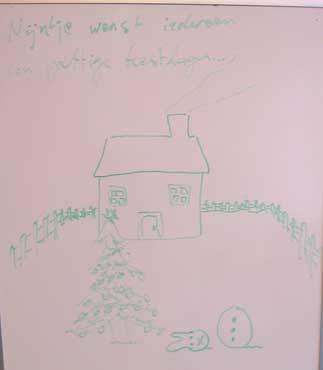 Nijntje wenst iedereen
een prettige feestdagen...